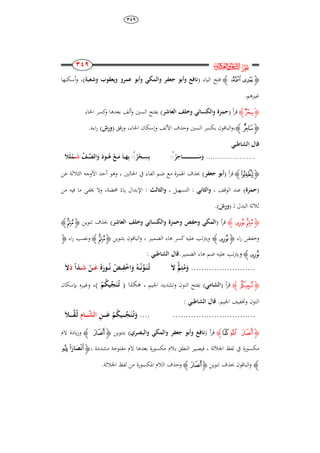 ٣٤٩
٣٤٩
﴿يَدَىَّ إِلَيْكَ﴾ فتح الياء (نافع وأبو جعفر والمكي وأبو عمرو ويعقوب وشعبة)، وأسكنها
غيرهم.
﴿سِحْرٌ﴾ قرأ (حمزة والكسائي وخلف العاشر) بفتح السين وألف بعدها وكسر الحاء
والباقون بكسر السين وحذف الألف وإسكان الحاء، ورقق (ورش) راءه.
قال الشاطبي
﴿لِيُطْفِئُوا﴾ قرأ (أبو جعفر) بحذف الهمزة مع ضم الفاء في الحالين ، وهو أحد الأوجه الثلاثة عن
(حمزة) عند الوقف ، والثاني : التسهيل ، والثالث : الإبدال ياءً محضة، ولا يخفى ما فيه من
ثلاثة البدل لـ (ورش).
﴿مُتِمُّ نُورِهِ﴾ قرأ (المكي وحفص وحمزة والكسائي وخلف العاشر) بحذف تنوين ﴿مُتِمُّ﴾
وخفض راء ﴿نُورِهِ﴾ ويترتب عليه كسر هاء الضمير ، والباقون بتنوين ﴿مُتِمٌّ﴾ ونصب راء ﴿
نُورَهُ﴾ ويترتب عليه ضم هاء الضمير. قال الشاطبي :
........................ وَلِلَّهِ زِدْ لَامًا
﴿تُنجِيكُم﴾ قرأ (الشامي) بفتح النون وتشديد الجيم ، هكذا ( تُنَجِّيكُمْ )، وغيره بإسكان
النون وتخفيف الجيم. قال الشاطبي :
.............................. .... وَتُنْجِيكُمُ عَنِ الشَّامِ ثُقِّلَا
﴿أَنصَارَ اللَّهِ كَمَا﴾ قرأ (نافع وأبو جعفر والمكي والبصري) بتنوين ﴿أَنصَارًا﴾ وزيادة لام
مكسورة في لفظ الجلالة ، فيصير النطق بلام مكسورة بعدها لام مفتوحة مشددة ، ﴿أَنصَارًا لِلَّهِ
﴾ والباقون بحذف تنوين ﴿أَنصَارَ﴾ وحذف اللام المكسورة من لفظ الجلالة.